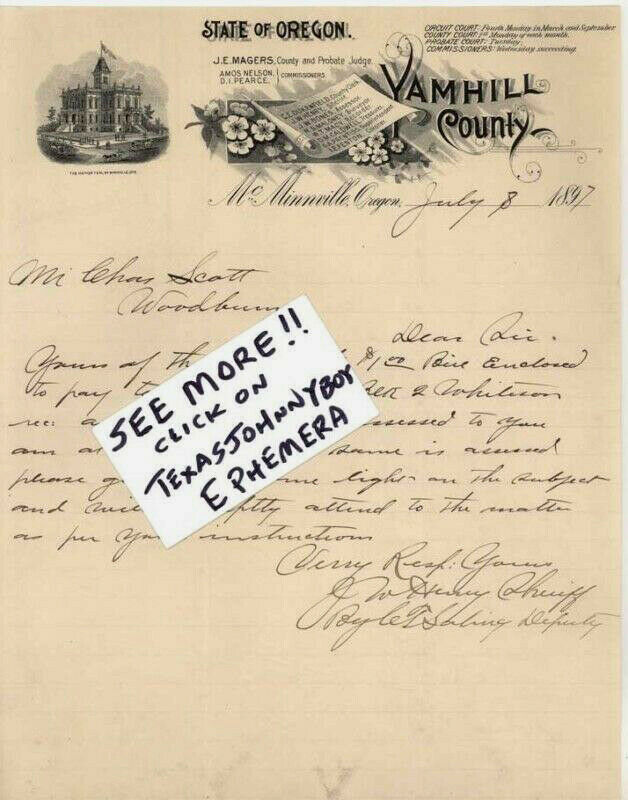 STATE OF OREGON.
J. E. MAGERS, County and Probate Judge.
AMOS NELSON,
D. I. PEARCE.
COMMISSIONERS
CIRCUIT COURT: Fourth Monday in March and September
COUNTY COURT: 1st Monday of each month.
PROBATE COURT: Tuesday.
COMMISSIONERS: Wednesday succeeding.
YAMHILL
COUNTY
McMinnville, Oregon, July 8 1897
Mr Chas Scott
Woodburn
Dear Sir.
Yours of th $1.00 Bill Enclosed
to pay & Whiteson
rec: a assessed to you
am a same is assessed
please g me light on the subject
and wil ptly attend to the matter
as per you instructions
Very Resp: Yours
J W Henry Sheriff
By Deputy
SEE MORE!!
CLICK ON
TEXASJOHNNYBOY
EPHEMERA